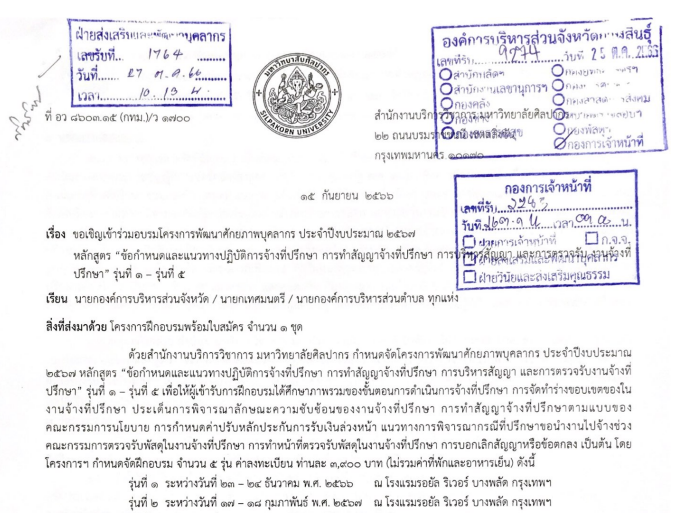 ฝ่ายส่งเสริมและพัฒนาบุคลากร
เลขรับที่ 1764
วันที่ 27 ต.ค. 66
เวลา 10.13 น.
องค์การบริหารส่วนจังหวัดกาฬสินธุ์
เลขที่รับ 9974 วันที่ 25 ต.ค. 2566
สำนักปลัดฯ
สำนักงานเลขานุการฯ
กองคลัง
กองช่าง
กองพัสดุฯ
กองการเจ้าหน้าที่
มหาวิทยาลัยศิลปากร
SILPAKORN UNIVERSITY
ที่ อว ๘๖๐๓.๑๕ (กทม.)/ว ๑๗๐๐
สำนักงานบริการวิชาการ มหาวิทยาลัยศิลปากร
๒๒ ถนนบรมราชชนนี
กรุงเทพมหานคร ๑๐๑๗๐
๑๕ กันยายน ๒๕๖๖
กองการเจ้าหน้าที่
เลขที่รับ
วันที่ เวลา น.
ฝ่ายการเจ้าหน้าที่ ก.จ.จ.
ฝ่ายส่งเสริมและพัฒนาบุคลากร
ฝ่ายวินัยและส่งเสริมคุณธรรม
เรื่อง ขอเชิญเข้าร่วมอบรมโครงการพัฒนาศักยภาพบุคลากร ประจำปีงบประมาณ ๒๕๖๗
หลักสูตร “ข้อกำหนดและแนวทางปฏิบัติการจ้างที่ปรึกษา การทำสัญญาจ้างที่ปรึกษา การบริหารสัญญา และการตรวจรับงานจ้างที่
ปรึกษา” รุ่นที่ ๑ – รุ่นที่ ๕
เรียน นายกองค์การบริหารส่วนจังหวัด / นายกเทศมนตรี / นายกองค์การบริหารส่วนตำบล ทุกแห่ง
สิ่งที่ส่งมาด้วย โครงการฝึกอบรมพร้อมใบสมัคร จำนวน ๑ ชุด
ด้วยสำนักงานบริการวิชาการ มหาวิทยาลัยศิลปากร กำหนดจัดโครงการพัฒนาศักยภาพบุคลากร ประจำปีงบประมาณ
๒๕๖๗ หลักสูตร “ข้อกำหนดและแนวทางปฏิบัติการจ้างที่ปรึกษา การทำสัญญาจ้างที่ปรึกษา การบริหารสัญญา และการตรวจรับงานจ้างที่
ปรึกษา” รุ่นที่ ๑ – รุ่นที่ ๕ เพื่อให้ผู้เข้ารับการฝึกอบรมได้ศึกษาภาพรวมของขั้นตอนการดำเนินการจ้างที่ปรึกษา การจัดทำร่างขอบเขตของใน
งานจ้างที่ปรึกษา ประเด็นการพิจารณาลักษณะความซับซ้อนของงานจ้างที่ปรึกษา การทำสัญญาจ้างที่ปรึกษาตามแบบของ
คณะกรรมการนโยบาย การกำหนดค่าปรับหลักประกันการรับเงินล่วงหน้า แนวทางการพิจารณากรณีที่ปรึกษาขอนำงานไปจ้างช่วง
คณะกรรมการตรวจรับพัสดุในงานจ้างที่ปรึกษา การทำหน้าที่ตรวจรับพัสดุในงานจ้างที่ปรึกษา การบอกเลิกสัญญาหรือข้อตกลง เป็นต้น โดย
โครงการฯ กำหนดจัดฝึกอบรม จำนวน ๕ รุ่น ค่าลงทะเบียน ท่านละ ๓,๙๐๐ บาท (ไม่รวมค่าที่พักและอาหารเย็น) ดังนี้
รุ่นที่ ๑ ระหว่างวันที่ ๒๓ – ๒๔ ธันวาคม พ.ศ. ๒๕๖๖ ณ โรงแรมรอยัล ริเวอร์ บางพลัด กรุงเทพฯ
รุ่นที่ ๒ ระหว่างวันที่ ๑๗ – ๑๘ กุมภาพันธ์ พ.ศ. ๒๕๖๗ ณ โรงแรมรอยัล ริเวอร์ บางพลัด กรุงเทพฯ